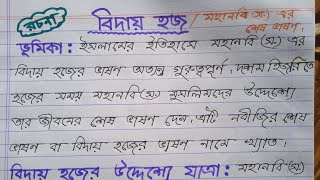 রচনা
বিদায় হজ / মহানবি (স.) এর
শেষ ভাষণ,
ভূমিকা: ইসলামের ইতিহাসে মহানবি (স.) এর
বিদায় হজের ভাষণ অত্যন্ত গুরুত্বপূর্ণ, দশম হিজরিতে
হজের সময় মহানবি (স.) মুসলিমদের উদ্দেশ্যে
তার জীবনের শেষ ভাষণ দেন, এটি নবীজির শেষ
ভাষণ বা বিদায় হজের ভাষণ নামে খ্যাত।
বিদায় হজের উদ্দেশ্যে যাত্রা: মহানবি (স.)